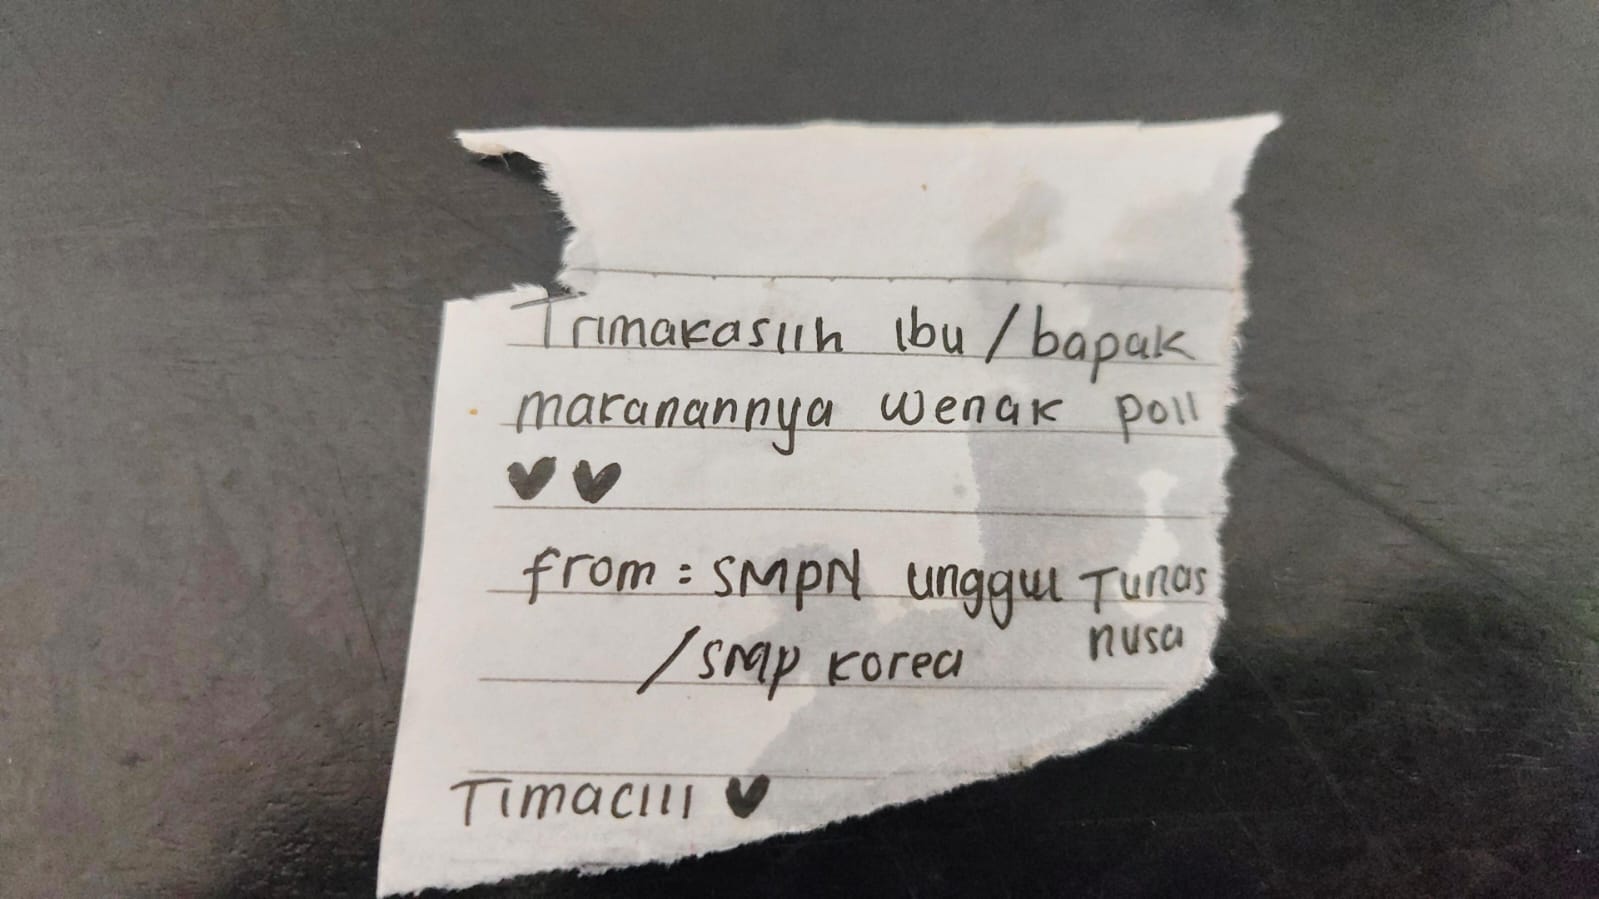 Trimakasiih ibu / bapak
makanannya wenak poll
♥♥
from : SMPN unggul Tunas
nusa
/ SMP korea
Timaciii ♥